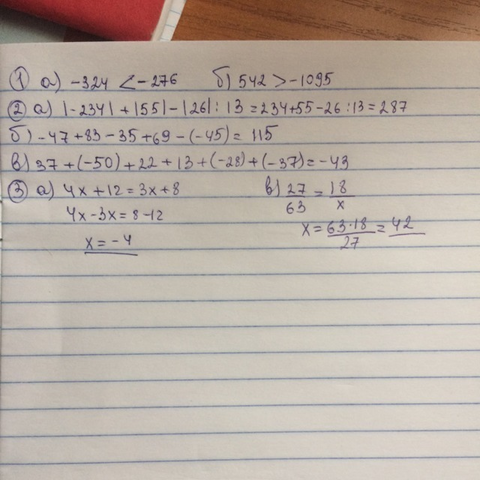 ① а) -324 < -276 б) 542 > -1095
② а) |-234| + |55| - |26| : 13 = 234+55-26 : 13 = 287
б) -47 + 83 - 35 + 69 - (-45) = 115
в) 37 + (-50) + 22 + 13 + (-28) + (-37) = -43
③ а) 4x + 12 = 3x + 8 в) 27/63 = 18/x
4x - 3x = 8 - 12
x = 63·18/27 = 42
x = -4